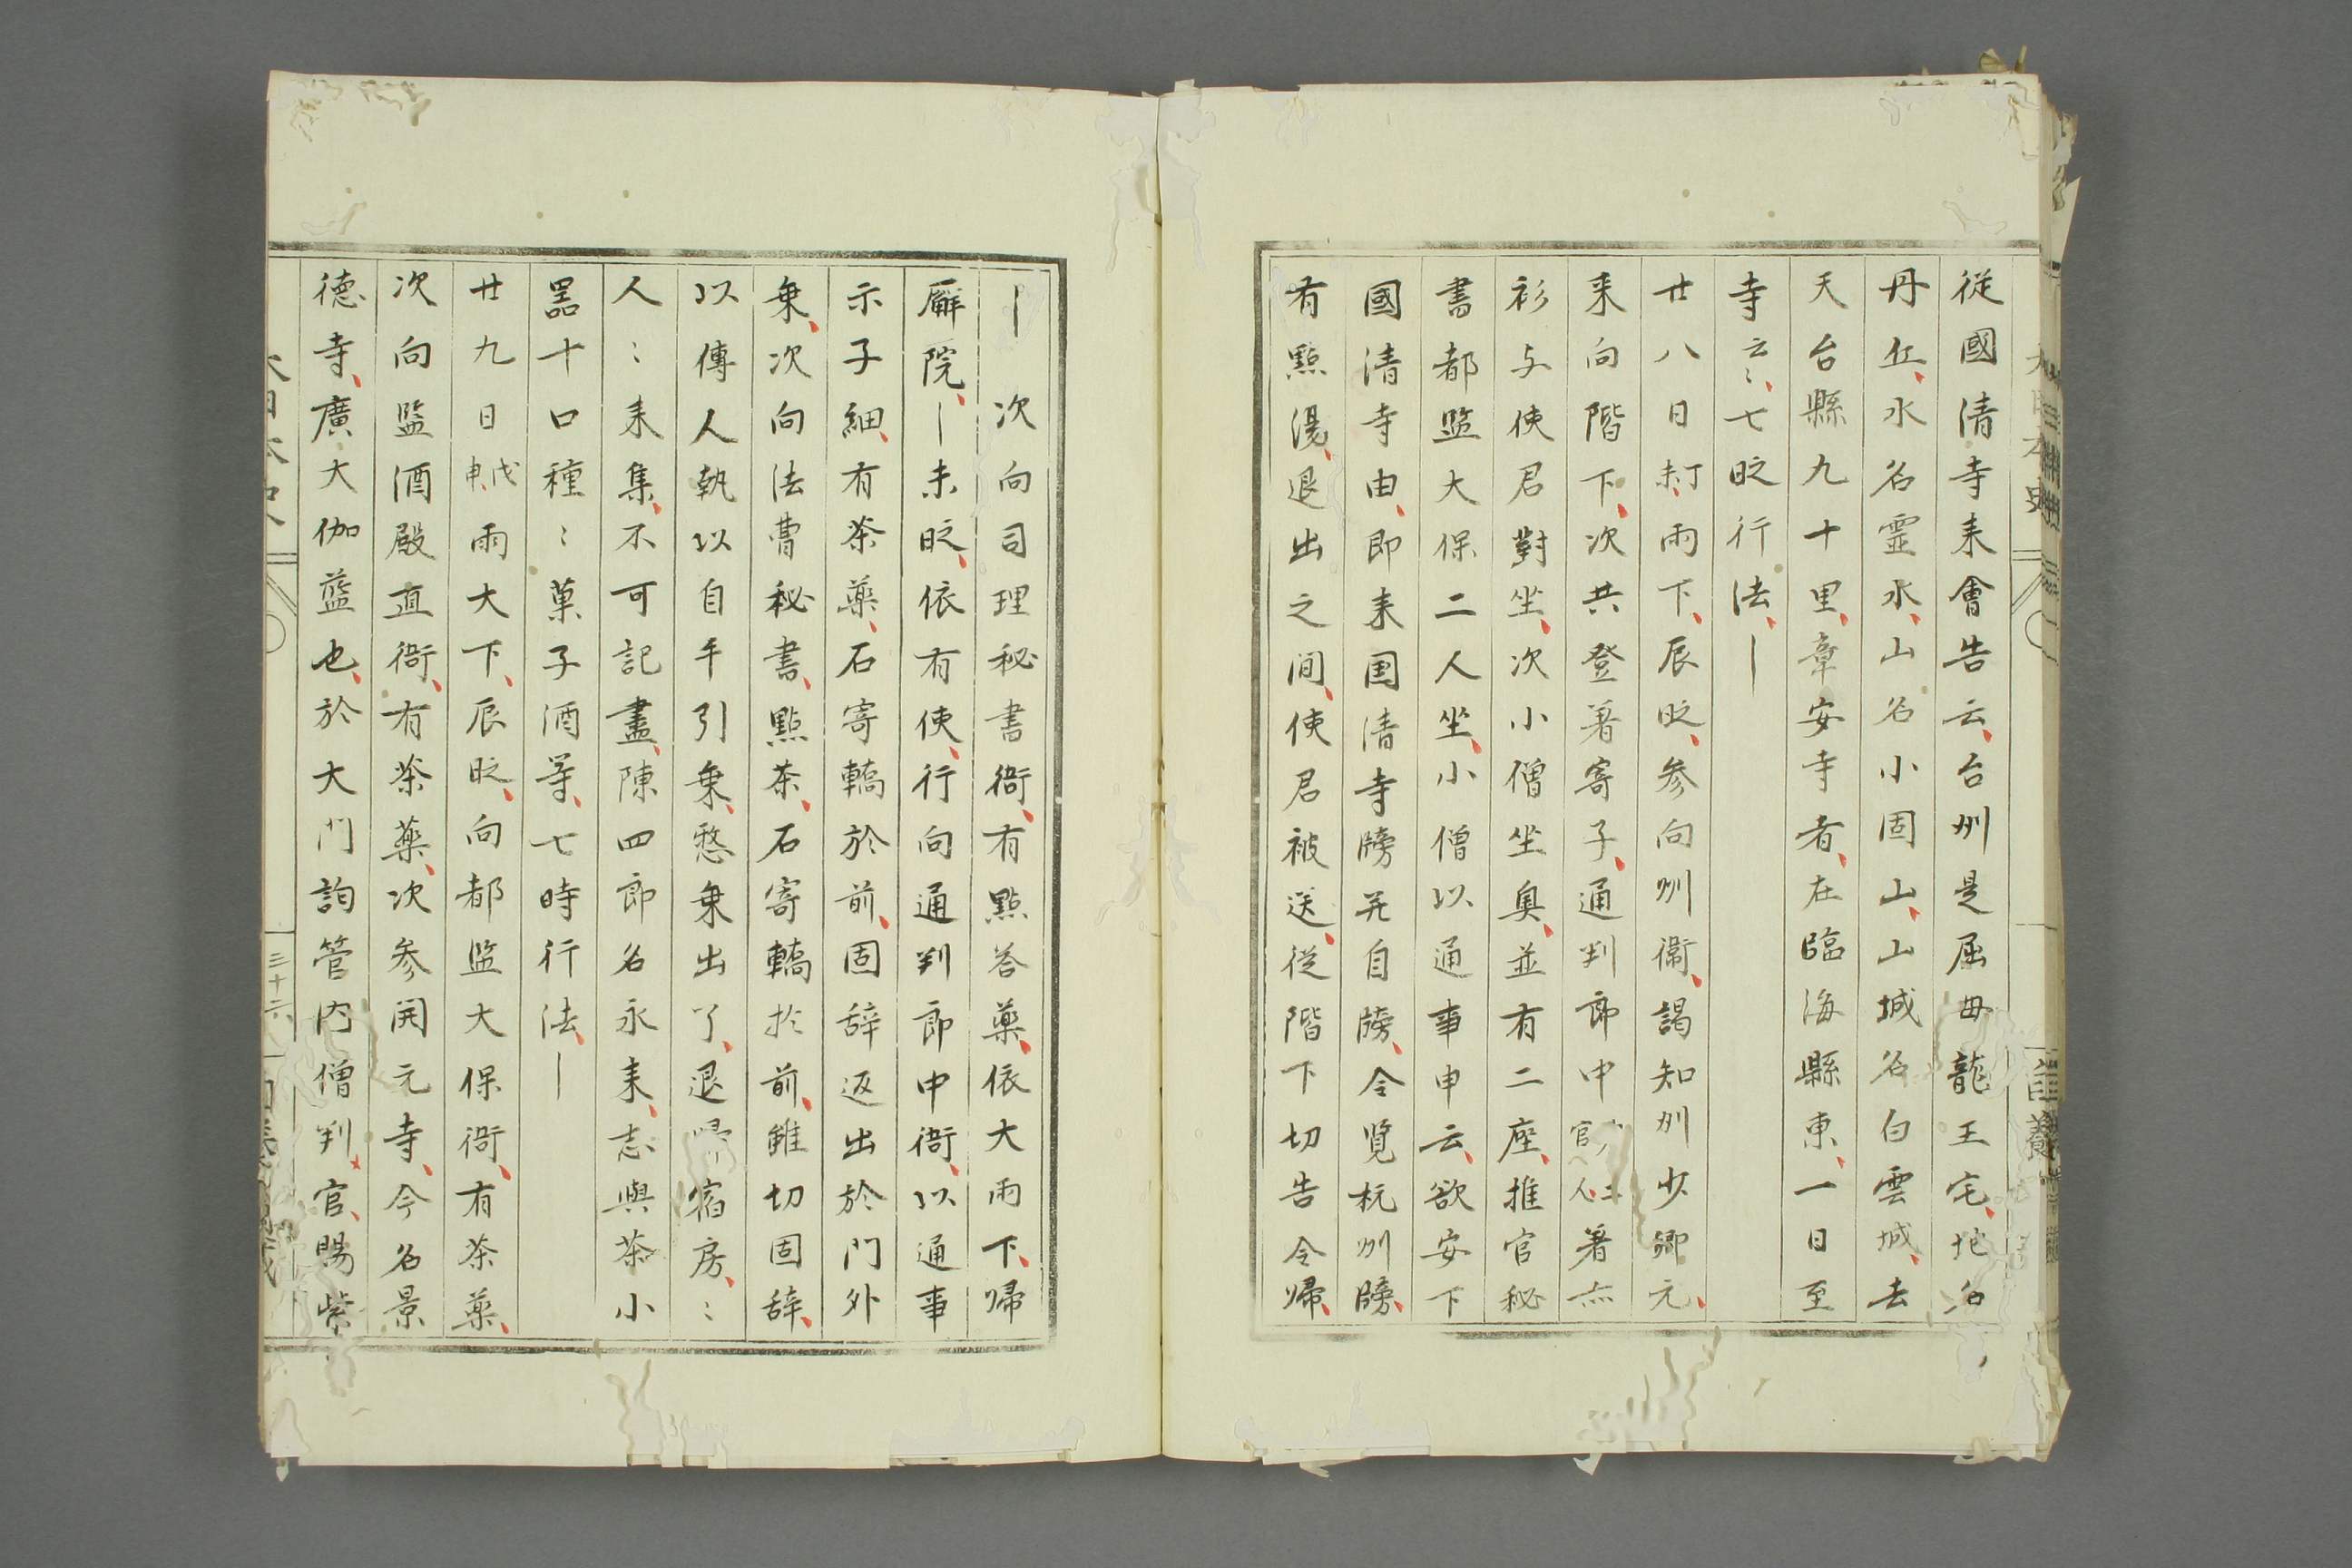 從國清寺来會告云、台州是屈母龍王宅、地名
丹丘、水名靈水、山名小固山、山城名白雲城、去
天台縣九十里、章安寺者、在臨海縣東、一日至
寺云〻、七时行法、―
廿八日丁未、雨下、辰时、参向州衙、謁知州少卿元、
来向階下、次共登著寄子、通判郎中官人二著赤
衫与使君對坐、次小僧坐奥、並有二座、推官秘
書都監大保二人坐、小僧以通事申云、欲安下
國清寺由、即来国清寺牓并自牓、令覧杭州牓、
有點湯、退出之間、使君被送、從階下切告令歸、
― 次向司理秘書衙、有點茶藥、依大雨下、歸
廨院、―未时、依有使、行向通判郎中衙、以通事
示子細、有茶藥、石寄轎於前、固辞返出於門外
乗、次向法曹秘書、點茶、石寄轎於前、雖切固辞、
以傳人執以自手引乗、憗乗出了、退歸宿房、〻
人〻来集、不可記盡、陳四郎名永来、志與茶小
器十口種〻菓子酒等、七時行法、―
廿九日戊申、雨大下、辰时、向都监大保衙、有茶薬、
次向監酒殿直衙、有茶薬、次参開元寺、今名景
德寺、廣大伽藍也、於大門詢管内僧判官、賜紫
三十六